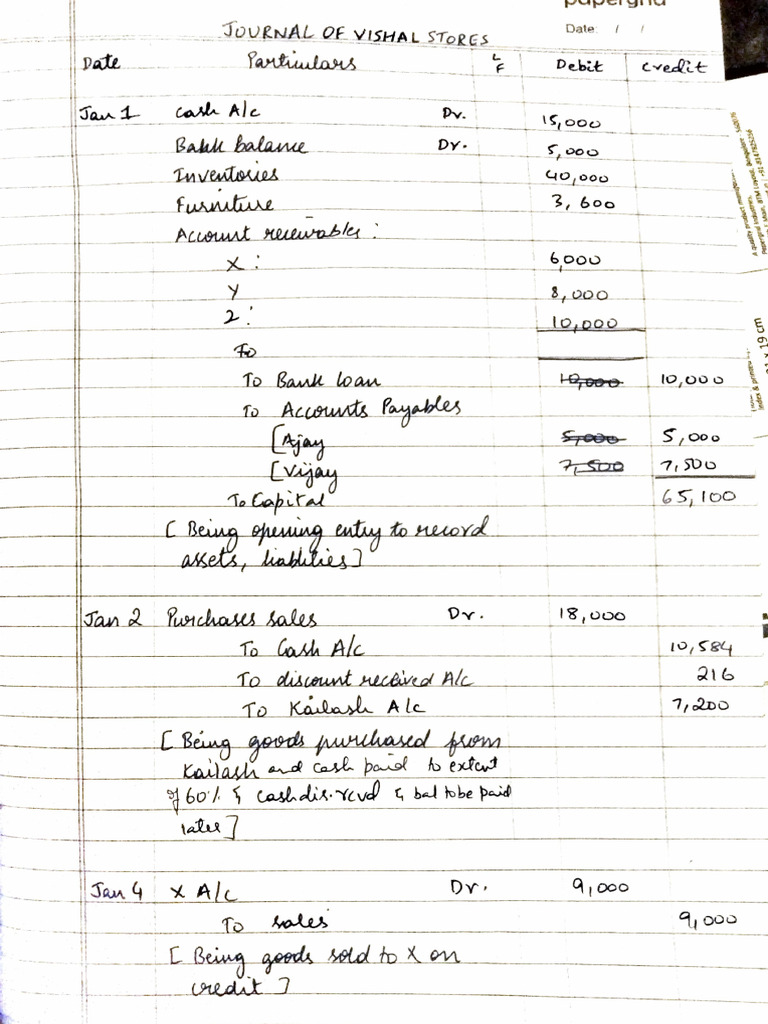 papergrid
Date: / /
JOURNAL OF VISHAL STORES
Date Particulars L F Debit Credit
Jan 1 Cash A/c Dr. 15,000
Bank balance Dr. 5,000
Inventories 40,000
Furniture 3,600
Account receivables :
X : 6,000
Y 8,000
Z : 10,000
To
To Bank loan 10,000 10,000
To Accounts Payables
[Ajay 5,000 5,000
[Vijay 7,500 7,500
To Capital 65,100
[ Being opening entry to record
assets, liablities]
Jan 2 Purchases sales Dr. 18,000
To Cash A/c 10,584
To discount received A/c 216
To Kailash A/c 7,200
[ Being goods purchased from
Kailash and cash paid to extent
of 60% & cash dis. rcvd & bal to be paid
later]
Jan 4 X A/c Dr. 9,000
To sales 9,000
[ Being goods sold to X on
credit ]